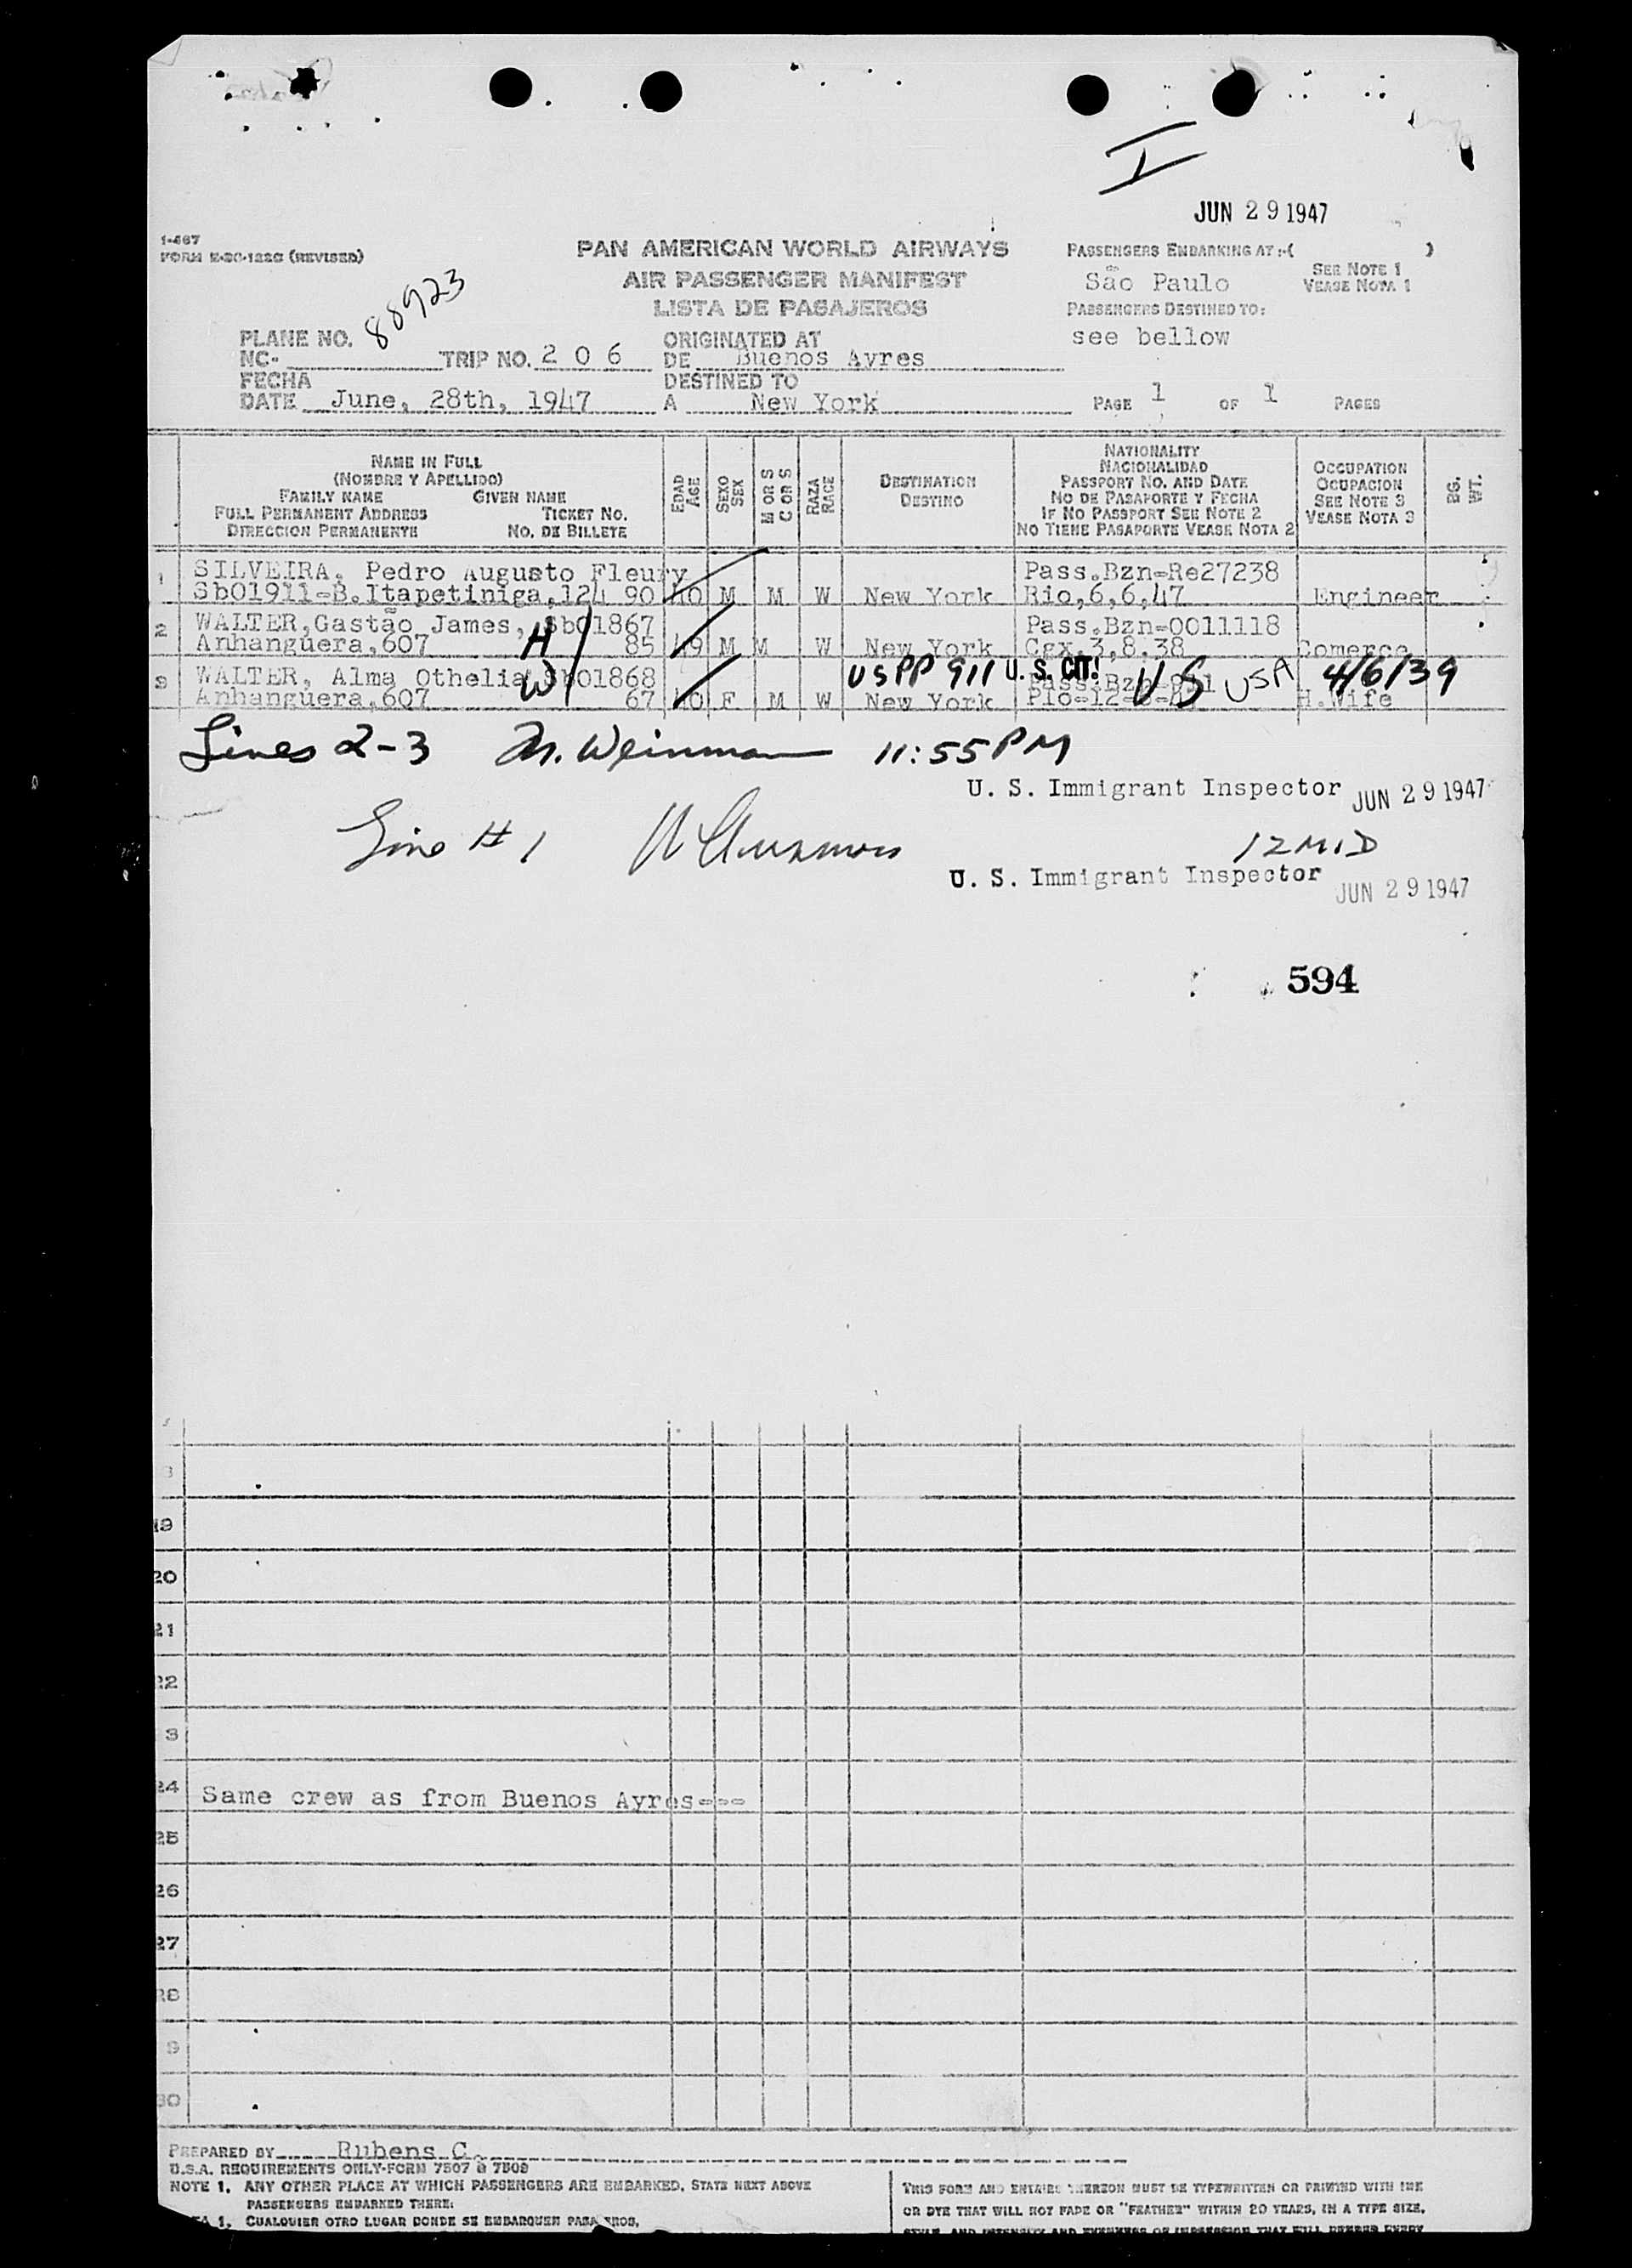 I
JUN 29 1947
1-467
FORM K-20-122G (REVISED)
PAN AMERICAN WORLD AIRWAYS
AIR PASSENGER MANIFEST
LISTA DE PASAJEROS
PASSENGERS EMBARKING AT:-( )
São Paulo
SEE NOTE 1
VEASE NOTA 1
PASSENGERS DESTINED TO:
see bellow
PLANE NO.
NC-
88923
TRIP NO. 2 0 6
ORIGINATED AT
DE Buenos Ayres
FECHA
DATE June, 28th, 1947
DESTINED TO
A New York
PAGE 1 OF 1 PAGES
NAME IN FULL
(NOMBRE Y APELLIDO)
FAMILY NAME GIVEN NAME
FULL PERMANENT ADDRESS TICKET NO.
DIRECCION PERMANENTE NO. DE BILLETE
EDAD
AGE
SEXO
SEX
M OR S
C OR S
RAZA
RACE
DESTINATION
DESTINO
NATIONALITY
NACIONALIDAD
PASSPORT NO. AND DATE
NO DE PASAPORTE Y FECHA
IF NO PASSPORT SEE NOTE 2
NO TIENE PASAPORTE VEASE NOTA 2
OCCUPATION
OCUPACION
SEE NOTE 3
VEASE NOTA 3
BG.
WT.
1 SILVEIRA, Pedro Augusto Fleury Pass.Bzn-Re27238
Sb01911-B.Itapetiniga,124 90 40 M M W New York Rio,6,6,47 Engineer
2 WALTER,Gastão James, Sb01867 Pass.Bzn-0011118
Anhanguera,607 H 85 49 M M W New York Cgx,3,8.38 Comerce
3 WALTER, Alma Othelia Sb01868 US PP 911 U. S. CIT! Pass.Bzn-911 US USA 4/6/39
Anhanguera,607 W 67 40 F M W New York H.Wife
Lines 2-3 M. Weinman 11:55 PM
U. S. Immigrant Inspector JUN 29 1947
Line # 1 12 MID
U. S. Immigrant Inspector JUN 29 1947
594
19
20
21
22
3
24 Same crew as from Buenos Ayres---
25
26
27
28
9
30
PREPARED BY Rubens C.
U.S.A. REQUIREMENTS ONLY-FORM 7507 & 7509
NOTE 1. ANY OTHER PLACE AT WHICH PASSENGERS ARE EMBARKED, STATE NEXT ABOVE
PASSENGERS EMBARKED THERE:
1. CUALQUIER OTRO LUGAR DONDE SE EMBARQUEN
THIS FORM AND ENTRIES THEREON MUST BE TYPEWRITTEN OR PRINTED WITH INK
OR DYE THAT WILL NOT FADE OR "FEATHER" WITHIN 20 YEARS, IN A TYPE SIZE,
STYLE AND INTENSITY AND EVENNESS OF IMPRESSION THAT WILL RENDER EVERY